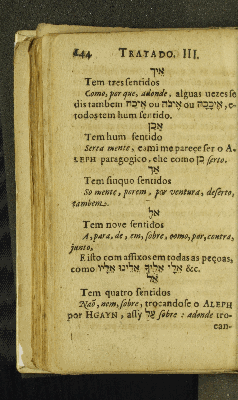 244 TRATADO. III.
איך
Tem tres sentidos
Como, por que, adonde, alguas uezes se
dis tambem איכה ou איככה, e
todos tem hum sentido.
אכן
Tem hum sentido
Serta mente, e a mi me pareçe ser o A-
LEPH paragogico, este como כן serto.
אך
Tem sinquo sentidos
So mente, porem, por ventura, deserto,
tambem.
אל
Tem nove sentidos
A, para, de, em, sobre, como, por, contra,
junto.
E isto com affixos em todas as peçoas,
como אלי אליך אלינו אליו &c.
אל
Tem quatro sentidos
Naõ, nem, sobre, trocandose o ALEPH
por HGAYN, assy על sobre : adonde tro-
can-